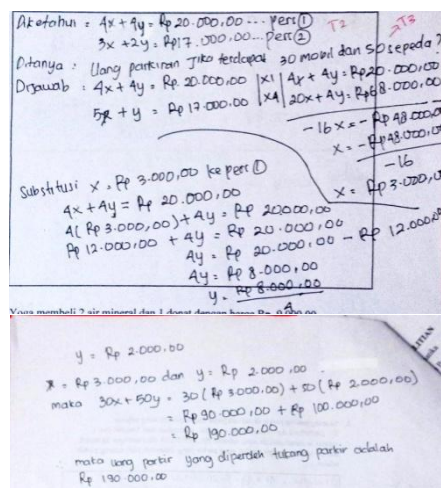 Diketahui : 4x + 4y = Rp 20.000,00 ... pers ①
T2
T3
3x + 2y = Rp 17.000,00 ... pers ②
Ditanya : Uang parkiran Jika terdapat 30 mobil dan 50 sepeda ?
Dijawab : 4x + 4y = Rp. 20.000,00 | x1 | 4x + 4y = Rp 20.000,00
5x + y = Rp 17.000.00 | x4 | 20x + 4y = Rp 68.000,00
-16x = - Rp 48.000,00
x = - Rp 48.000,00
-16
x = Rp 3.000,00
Substitusi x = Rp 3.000,00 ke pers ①
4x + 4y = Rp 20.000,00
4 ( Rp 3.000,00) + 4y = Rp 20.000,00
Rp 12.000,00 + 4y = Rp 20.000,00
4y = Rp 20.000,00 - Rp 12.000,00
4y = Rp 8.000,00
y = Rp 8.000,00
4
Yoga membeli 2 air mineral dan 1 donat dengan harga Rp. 9.000,00
y = Rp 2.000,00
x = Rp 3.000,00 dan y = Rp 2.000,00
maka 30x + 50y = 30 ( Rp 3.000,00) + 50 ( Rp 2.000,00)
= Rp 90.000,00 + Rp 100.000,00
= Rp 190.000,00
maka uang parkir yang diperoleh tukang parkir adalah
Rp 190.000,00